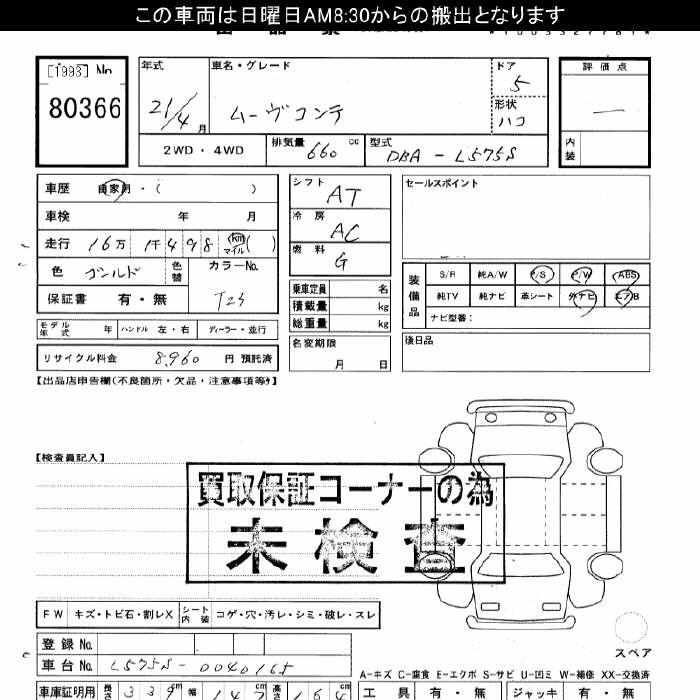 この車両は日曜日AM8:30からの搬出となります
[1993] No
80366
年式 車名・グレード ドア 評価点
21/4月 ムーヴコンテ 5
形状 ハコ
2WD・4WD 排気量 660 cc 型式 DBA-L575S 内装
車歴 自家用・( )
車検 年 月
走行 16万 1千498 km マイル( )
色 ゴールド 色替 カラーNo.
保証書 有・無 T23
モデル年式 年 ハンドル 左・右 ディーラー・並行
リサイクル料金 8,960 円 預託済
シフト AT
冷房 AC
燃料 G
乗車定員 名
積載量 kg
総重量 kg
名変期限
月 日
セールスポイント
装備品 S/R 純A/W P/S P/W ABS
純TV 純ナビ 革シート 外ナビ エアB
ナビ型番:
後日品
【出品店申告欄(不良箇所・欠品・注意事項等)】
【検査員記入】
買取保証コーナーの為
未検査
FW キズ・トビ石・割レX シート内装 コゲ・穴・汚レ・シミ・破レ・スレ
スペア
登録No.
車台No. L575S-0040165
A-キズ C-腐食 E-エクボ S-サビ U-凹ミ W-補修 XX-交換済
車庫証明用 長さ 339cm 幅 147 高さ 164
工具 有・無 ジャッキ 有・無